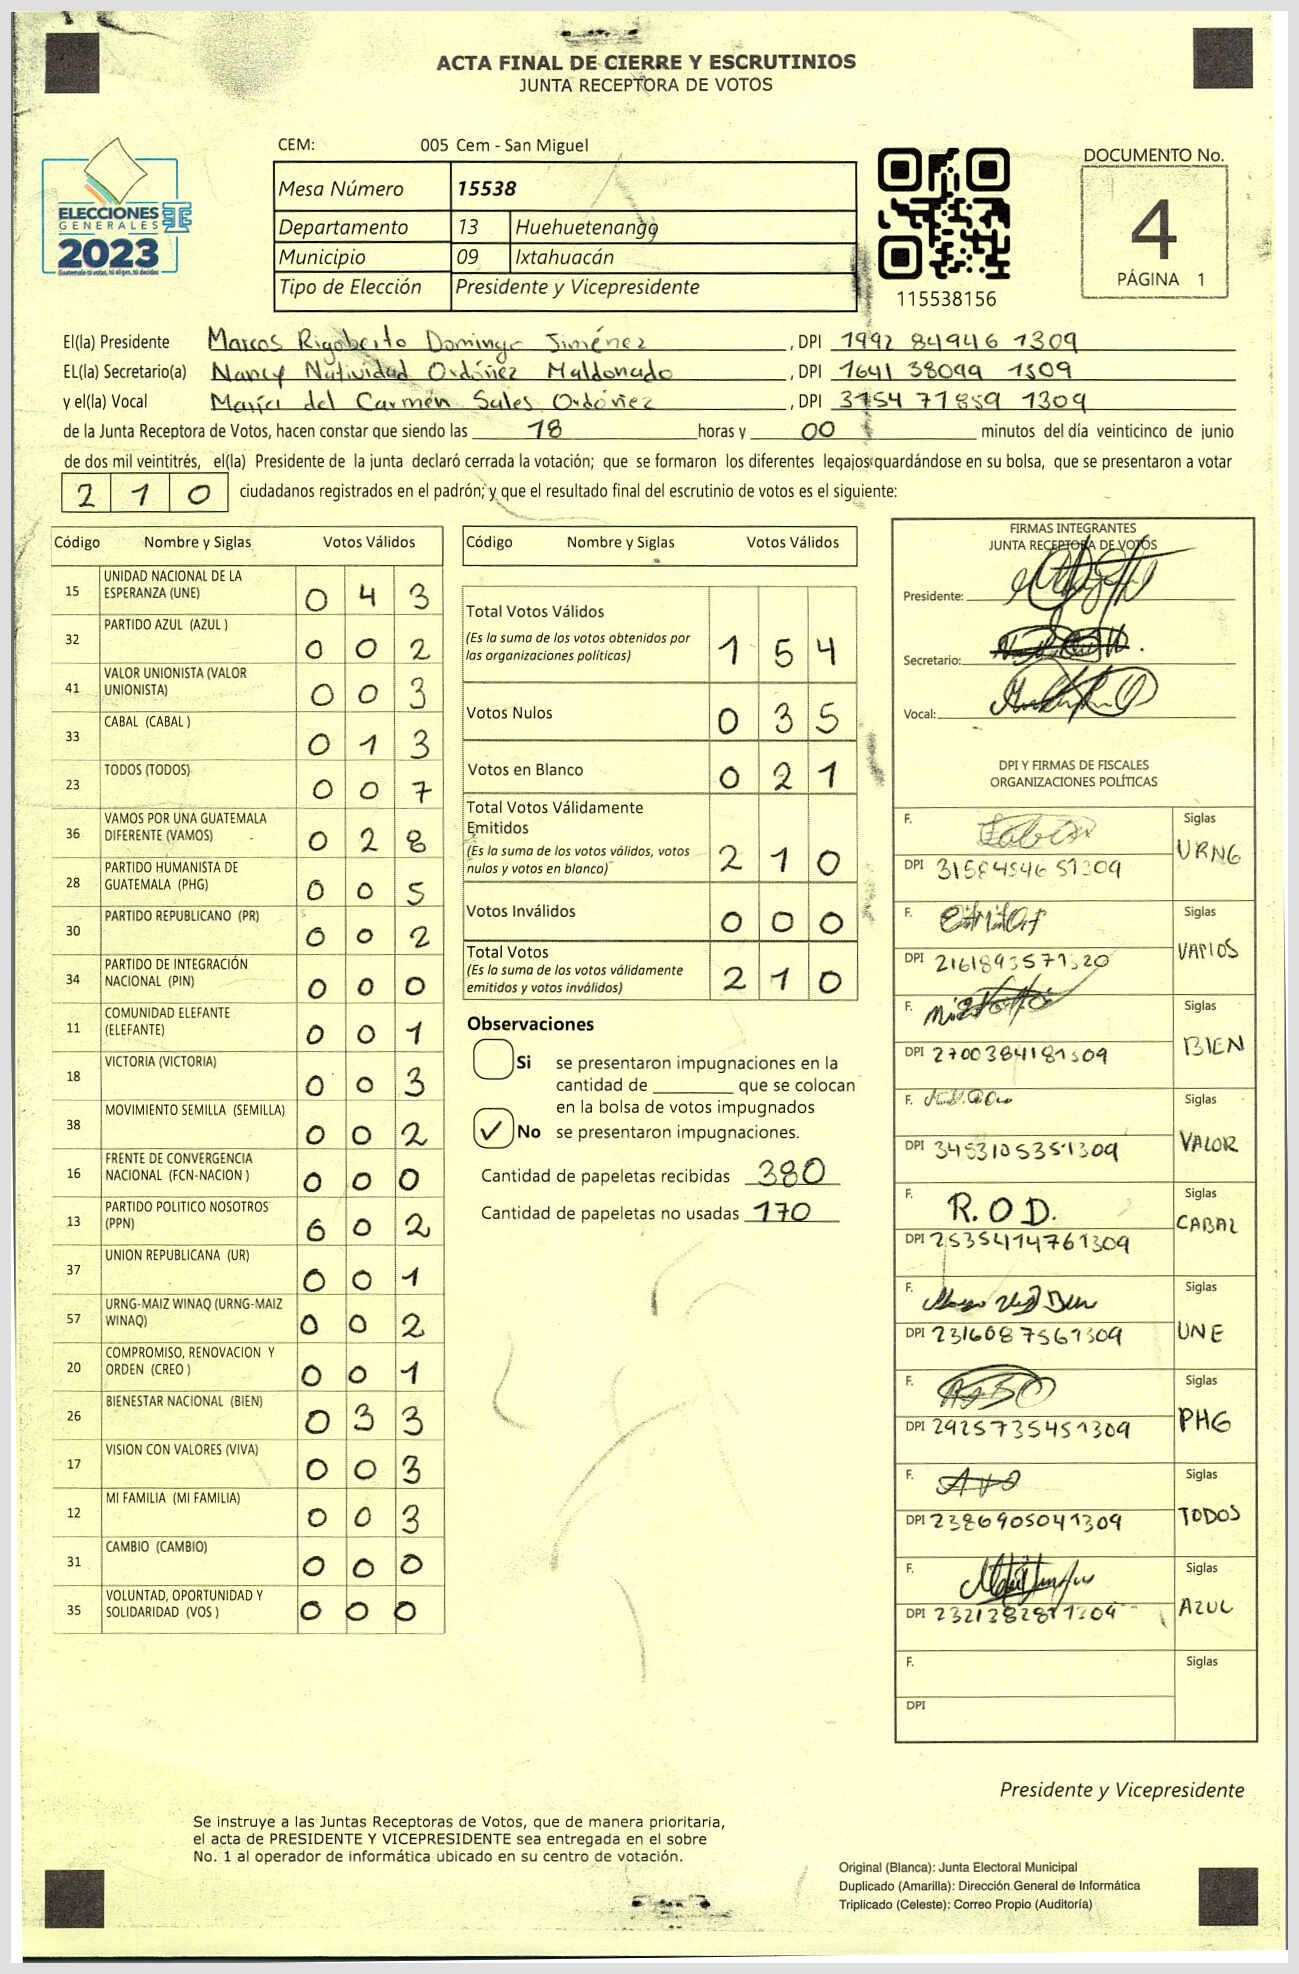 ACTA FINAL DE CIERRE Y ESCRUTINIOS
JUNTA RECEPTORA DE VOTOS
CEM: 005 Cem - San Miguel
Mesa Número 15538
Departamento 13 Huehuetenango
Municipio 09 Ixtahuacán
Tipo de Elección Presidente y Vicepresidente
ELECCIONES
GENERALES
2023
Guatemala tú votas, tú eliges, tú decides
115538156
DOCUMENTO No.
4
PÁGINA 1
El(la) Presidente Marcos Rigoberto Domingo Jiménez, DPI 1992 84946 1309
EL(la) Secretario(a) Nancy Natividad Ordóñez Maldonado, DPI 1641 38099 1309
y el(la) Vocal María del Carmen Sales Ordóñez, DPI 3154 71859 1309
de la Junta Receptora de Votos, hacen constar que siendo las 18 horas y 00 minutos del día veinticinco de junio
de dos mil veintitrés, el(la) Presidente de la junta declaró cerrada la votación; que se formaron los diferentes legajos guardándose en su bolsa, que se presentaron a votar
210 ciudadanos registrados en el padrón; y que el resultado final del escrutinio de votos es el siguiente:
Código Nombre y Siglas Votos Válidos
15 UNIDAD NACIONAL DE LA ESPERANZA (UNE) 0 4 3
32 PARTIDO AZUL (AZUL ) 0 0 2
41 VALOR UNIONISTA (VALOR UNIONISTA) 0 0 3
33 CABAL (CABAL ) 0 1 3
23 TODOS (TODOS) 0 0 7
36 VAMOS POR UNA GUATEMALA DIFERENTE (VAMOS) 0 2 8
28 PARTIDO HUMANISTA DE GUATEMALA (PHG) 0 0 5
30 PARTIDO REPUBLICANO (PR) 0 0 2
34 PARTIDO DE INTEGRACIÓN NACIONAL (PIN) 0 0 0
11 COMUNIDAD ELEFANTE (ELEFANTE) 0 0 1
18 VICTORIA (VICTORIA) 0 0 3
38 MOVIMIENTO SEMILLA (SEMILLA) 0 0 2
16 FRENTE DE CONVERGENCIA NACIONAL (FCN-NACION ) 0 0 0
13 PARTIDO POLITICO NOSOTROS (PPN) 0 0 2
37 UNION REPUBLICANA (UR) 0 0 1
57 URNG-MAIZ WINAQ (URNG-MAIZ WINAQ) 0 0 2
20 COMPROMISO, RENOVACION Y ORDEN (CREO ) 0 0 1
26 BIENESTAR NACIONAL (BIEN) 0 3 3
17 VISION CON VALORES (VIVA) 0 0 3
12 MI FAMILIA (MI FAMILIA) 0 0 3
31 CAMBIO (CAMBIO) 0 0 0
35 VOLUNTAD, OPORTUNIDAD Y SOLIDARIDAD (VOS ) 0 0 0
Código Nombre y Siglas Votos Válidos
Total Votos Válidos 1 5 4
(Es la suma de los votos obtenidos por
las organizaciones políticas)
Votos Nulos 0 3 5
Votos en Blanco 0 2 1
Total Votos Válidamente
Emitidos 2 1 0
(Es la suma de los votos válidos, votos
nulos y votos en blanco)
Votos Inválidos 0 0 0
Total Votos 2 1 0
(Es la suma de los votos válidamente
emitidos y votos inválidos)
Observaciones
Si se presentaron impugnaciones en la
cantidad de ________ que se colocan
en la bolsa de votos impugnados
✓ No se presentaron impugnaciones.
Cantidad de papeletas recibidas 380
Cantidad de papeletas no usadas 170
FIRMAS INTEGRANTES
JUNTA RECEPTORA DE VOTOS
Presidente:
Secretario:
Vocal:
DPI Y FIRMAS DE FISCALES
ORGANIZACIONES POLÍTICAS
F. Siglas
DPI URNG
F. Siglas
DPI 2161893571320 VARIOS
F. Siglas
DPI 2700384181309 BIEN
F. Siglas
DPI 3453105351309 VALOR
F. R.O.D. Siglas
DPI 2535414761309 CABAL
F. Siglas
DPI 2316087561309 UNE
F. Siglas
DPI 2925735451309 PHG
F. Siglas
DPI 2386905041309 TODOS
F. Siglas
DPI AZUL
F. Siglas
DPI
Presidente y Vicepresidente
Se instruye a las Juntas Receptoras de Votos, que de manera prioritaria,
el acta de PRESIDENTE Y VICEPRESIDENTE sea entregada en el sobre
No. 1 al operador de informática ubicado en su centro de votación.
Original (Blanca): Junta Electoral Municipal
Duplicado (Amarilla): Dirección General de Informática
Triplicado (Celeste): Correo Propio (Auditoría)